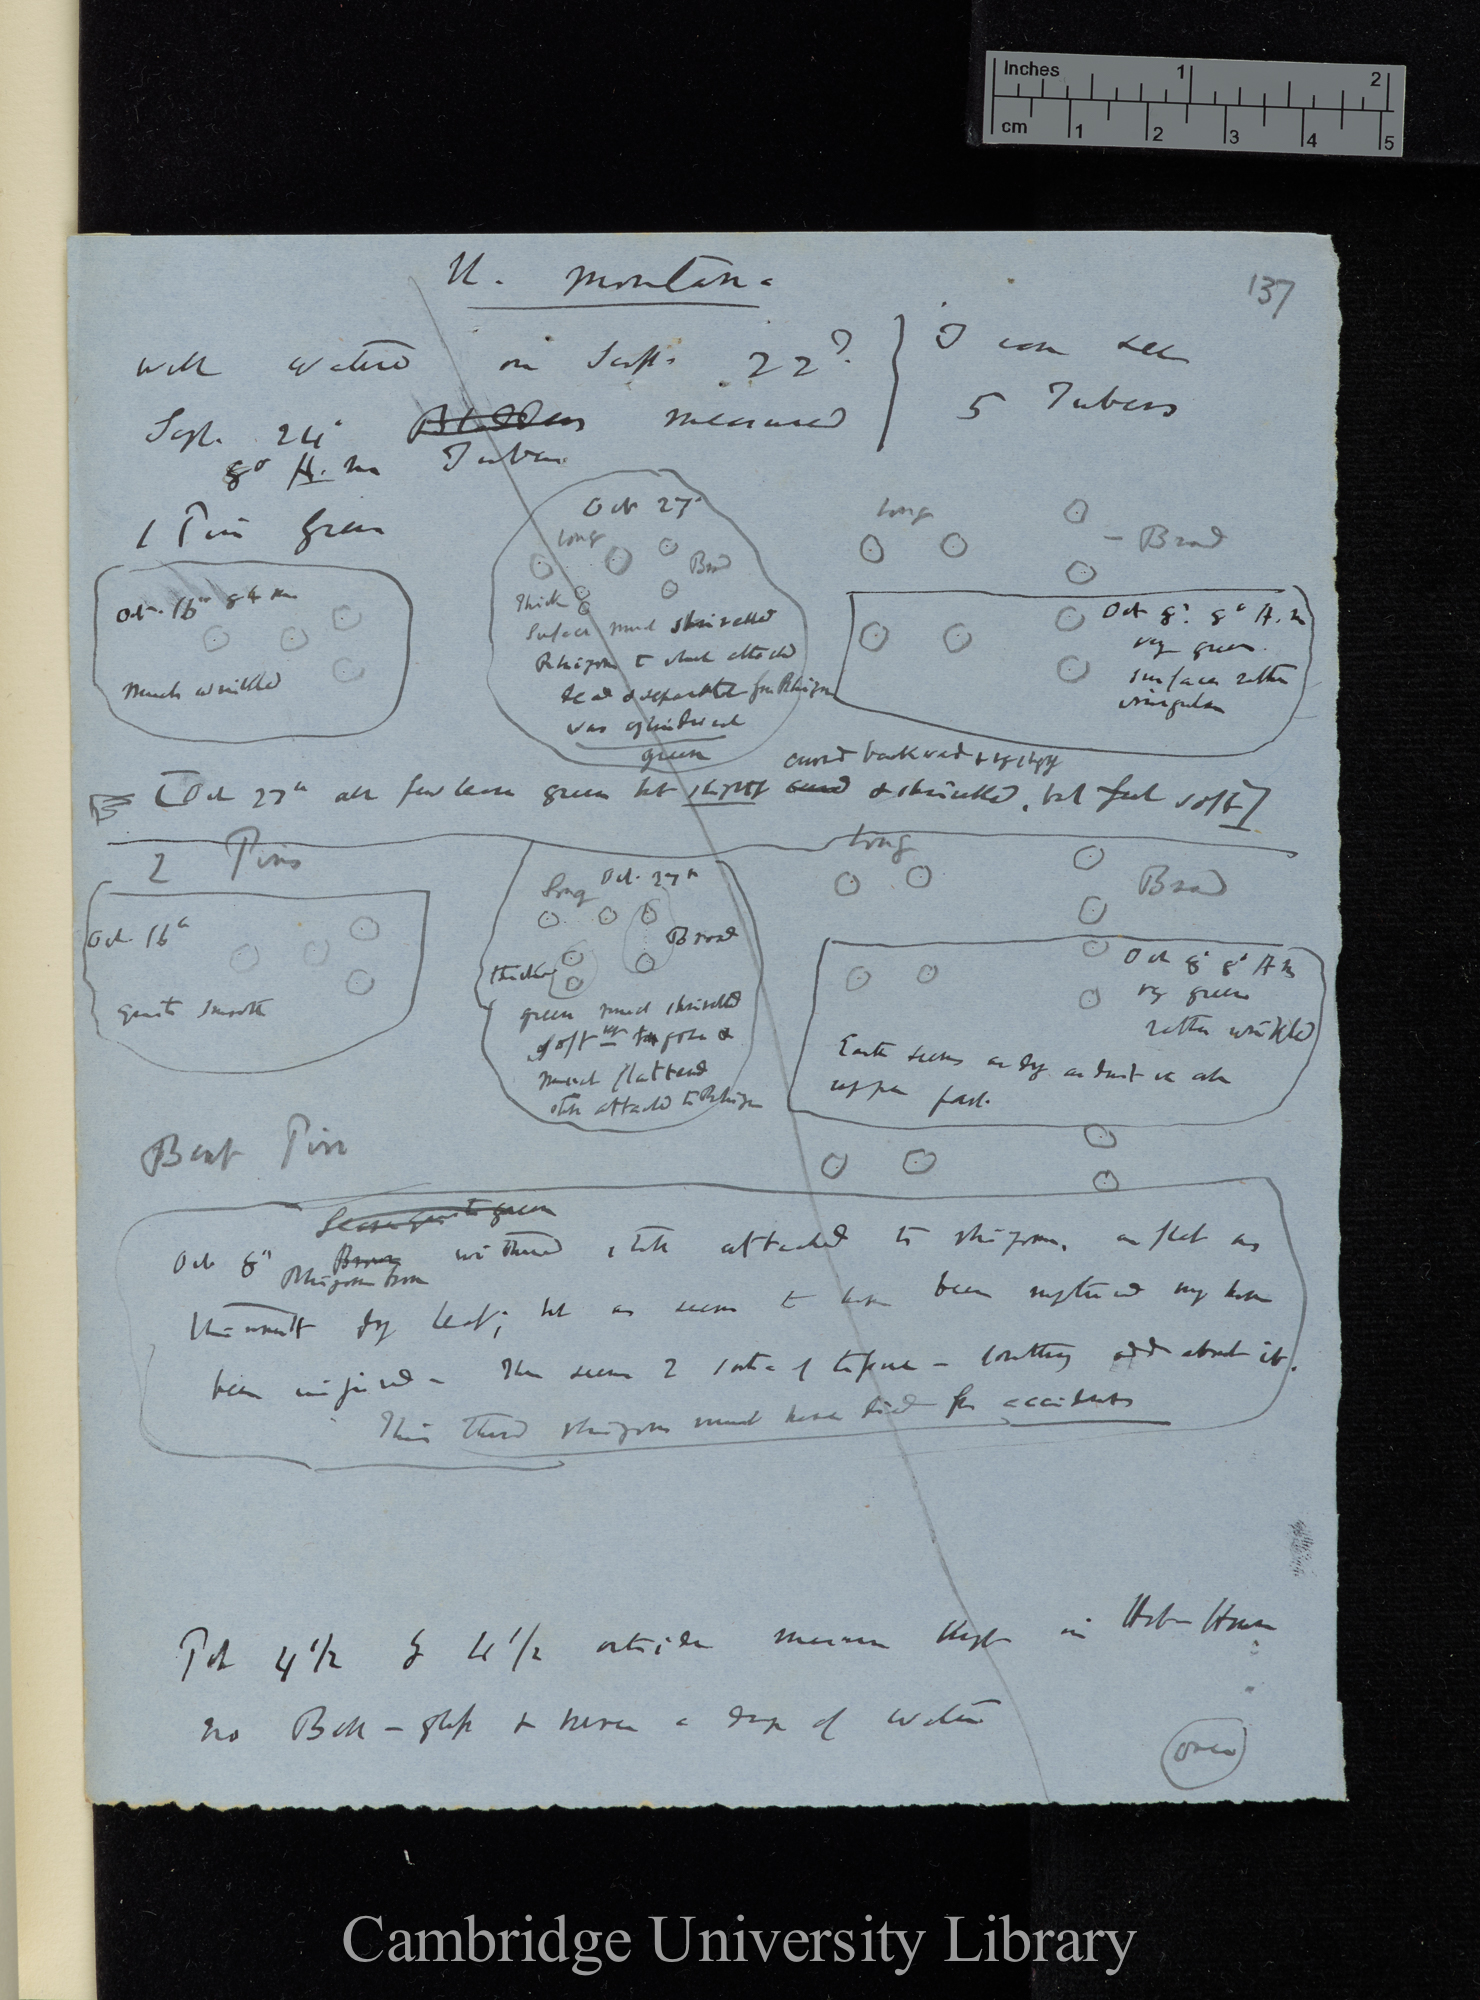 Inches 1 2
cm 1 2 3 4 5
137
U. montana
well watered on Sept. 22d.
I can see
5 Tubers
Sept. 24 Bladders measured
8° A.m Tuber
1 Pin green
Oct. 16th 8 A m
much wrinkled
Oct 27
long
Broad
Thick
Surface much shrivelled
Rhizome to which attached
dead & separated from Rhizome
was cylindrical
green
long
— Broad
Oct 8. 8° A. m
very green.
surface rather
irregular
curved backward
[Oct 27th all few leaves green but slightly & shrivelled, but feel soft]
2 Pins
Oct 16th
quite smooth
Long Oct. 27th
Broad
thick
green much shrivelled
soft
much flattened
still attached to Rhizome
Long
Broad
Oct 8 8° A m
very green
rather wrinkled
Earth seems as dry as dust in all
upper part.
Bent Pin
quite green
Oct 8th Brown withered still attached to rhizome, as flat as
Rhizome brown
thinnest dry leaf; but as seems to have been ruptured may have
been injured — There seems 2 sorts of — something odd about it.
This third rhizome must have died from accidents
Pot 4 1/2 by 4 1/2 outside measure kept in Hot-House
no Bell-glass & never a drop of water
over
Cambridge University Library